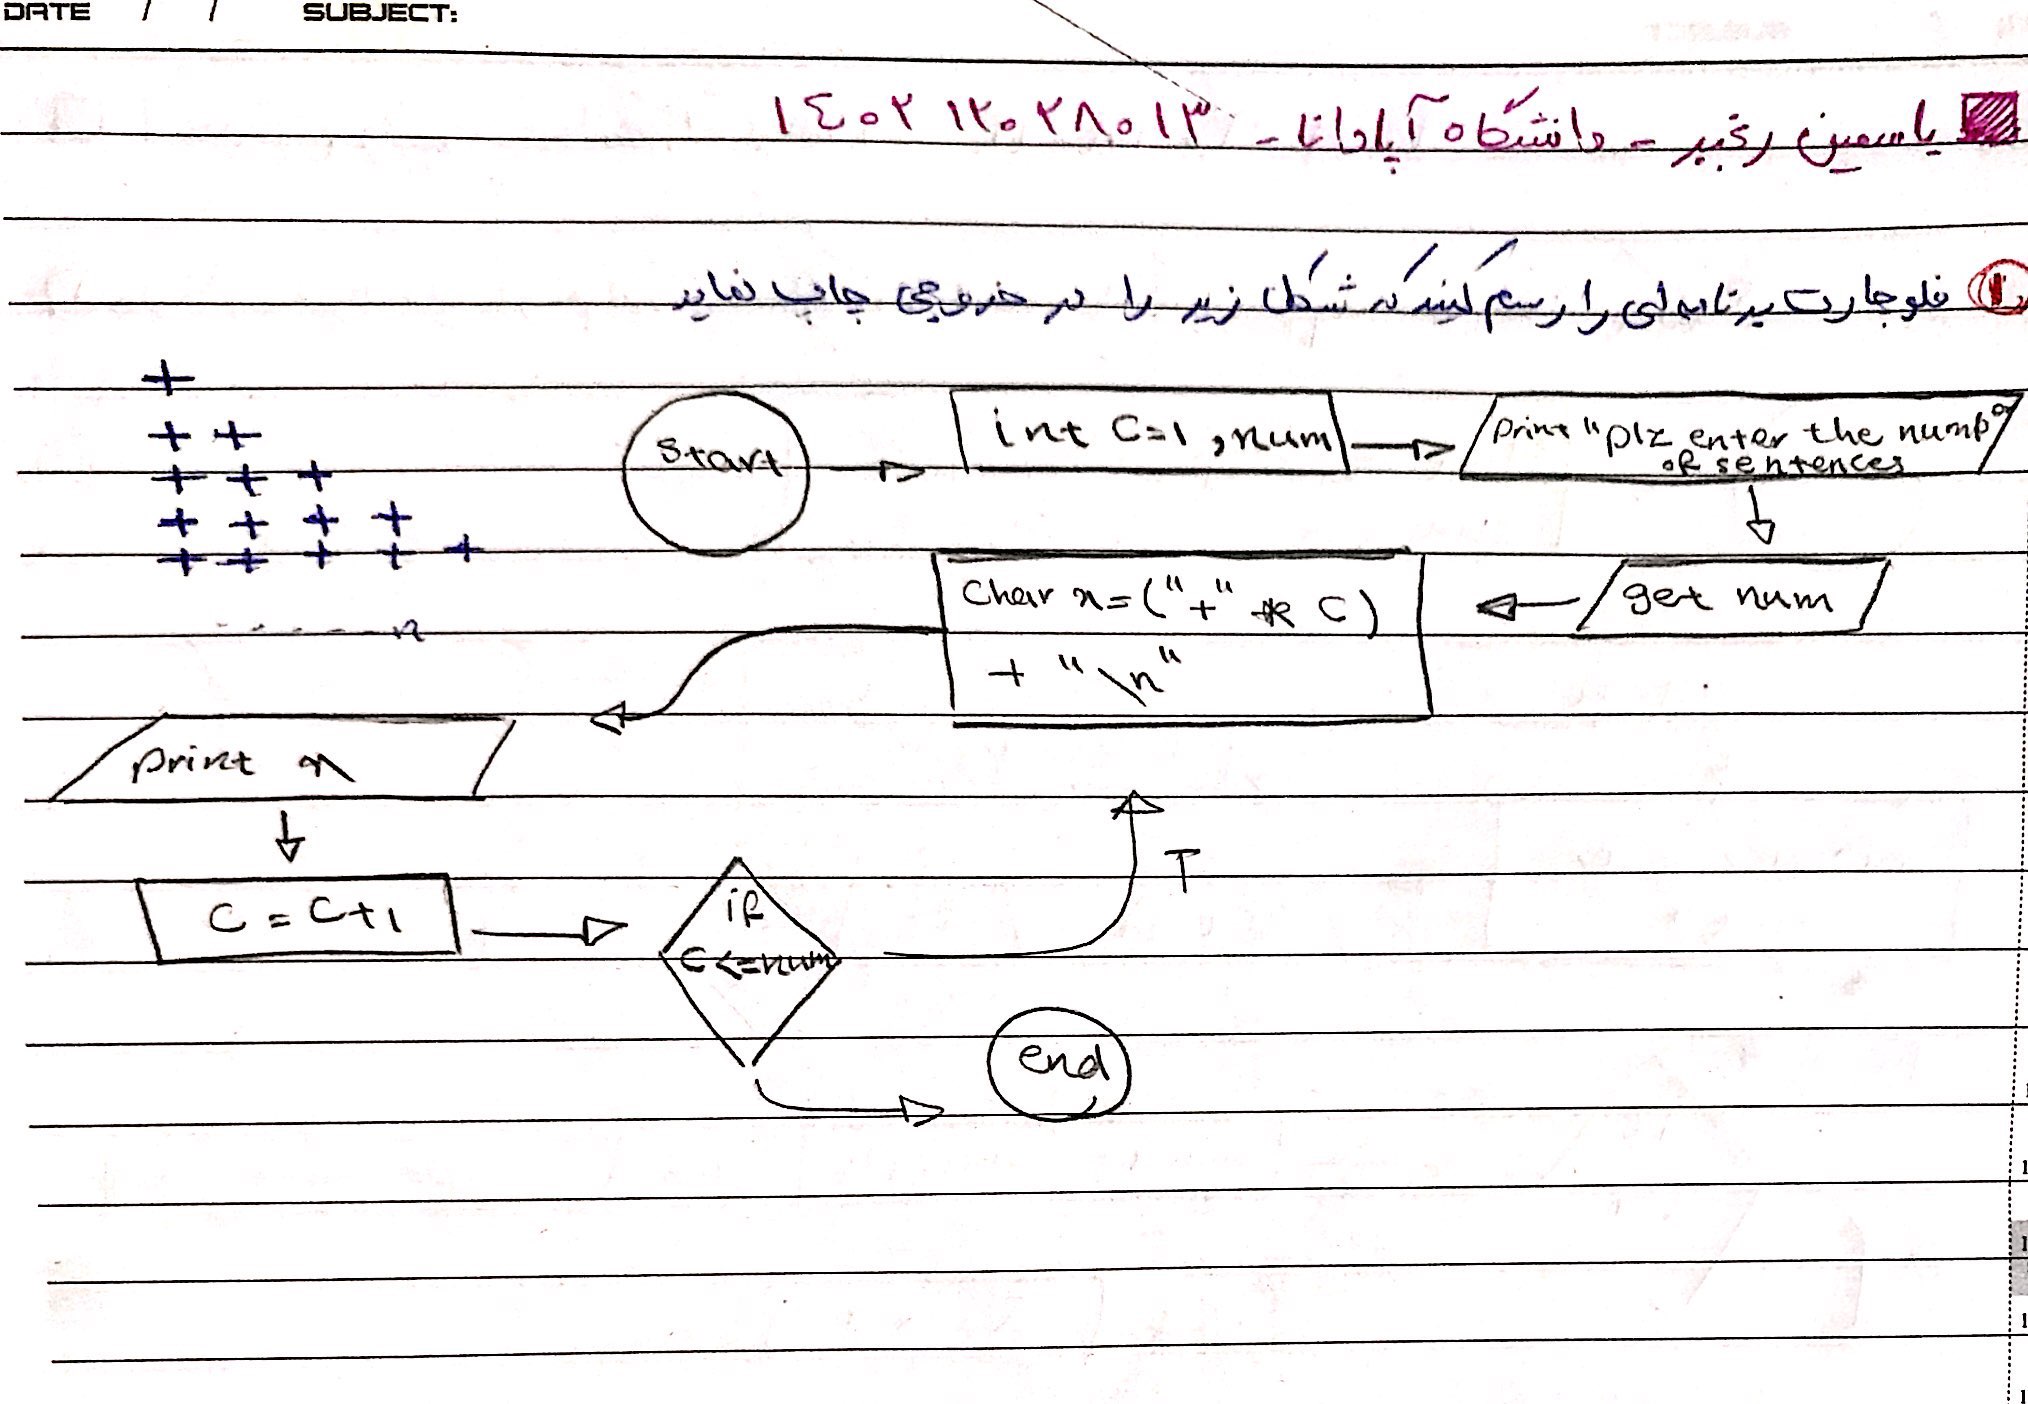 DATE / / SUBJECT:
یاسمین رغبیر - دانشگاه آپادانا - ۱۴۰۲۱۲۰۲۸۰۱۳
۱ فلوچارت برنامه ای را رسم کنید که شکل زیر را در خروجی چاپ نماید
+
+ +
+ + +
+ + + +
+ + + + +
------- n
start
int C=1, num
print "plz enter the num
of sentences
get num
Char n=("+" * C)
+ "\n"
print n
C = C+1
if
C<=num
T
end